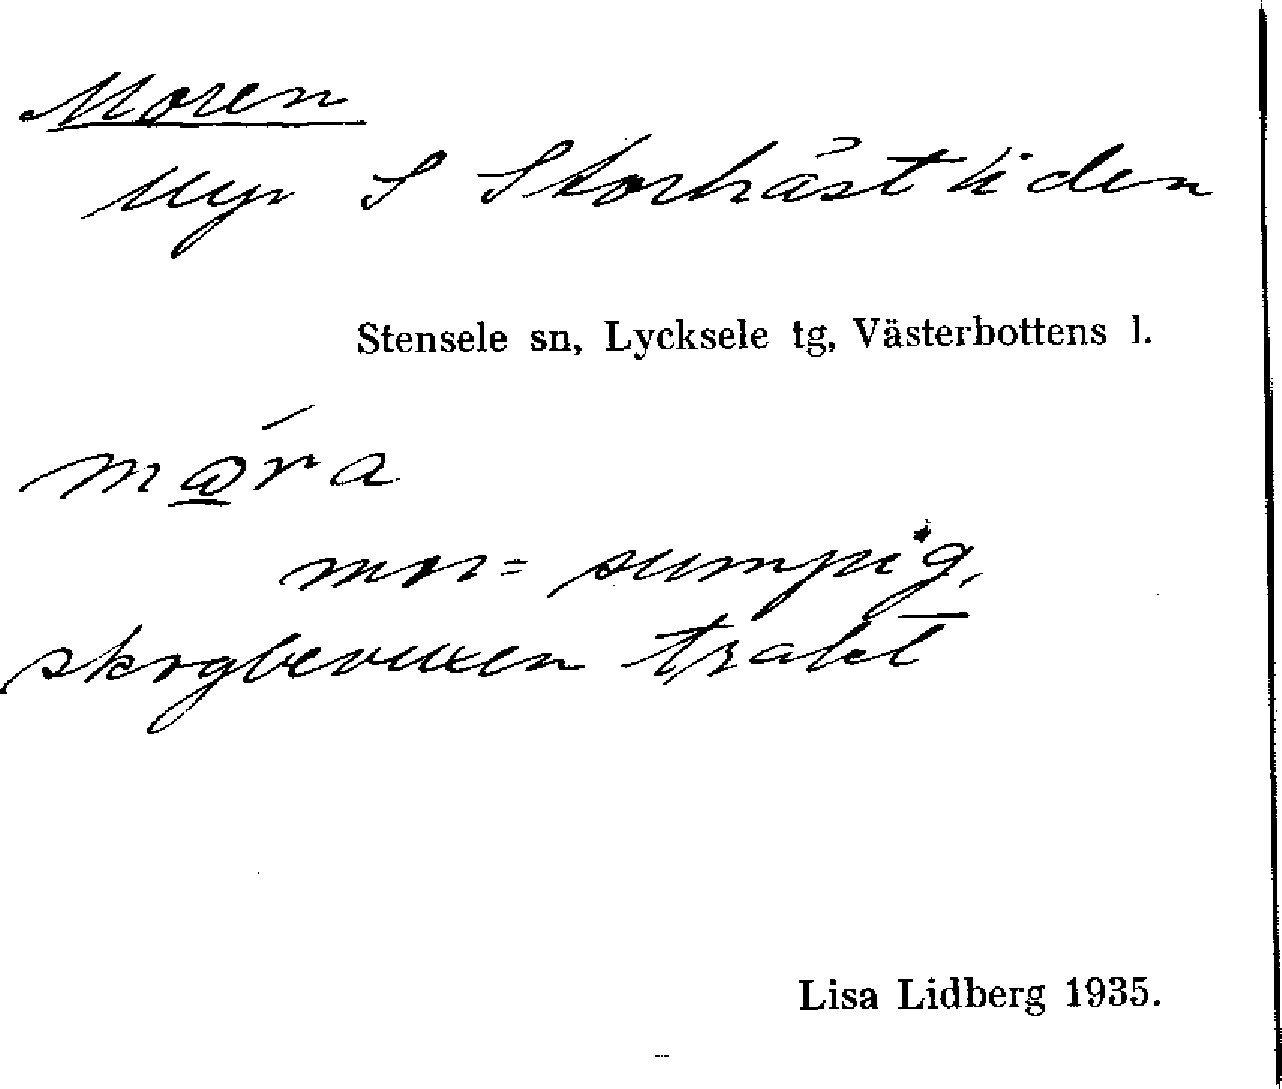 Moren
Myr S Storhästliden
Stensele sn, Lycksele tg, Västerbottens l.
mor = sumpig,
skogbevuxen trakt
Lisa Lidberg 1935.